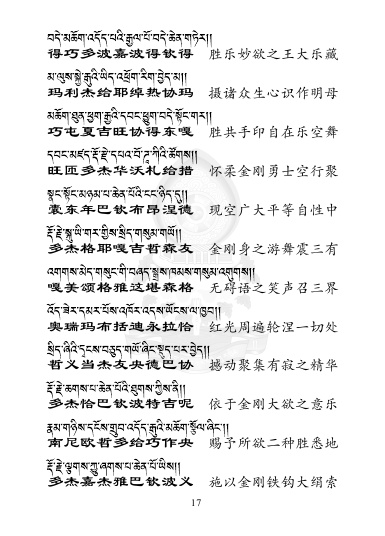 བདེ་མཆོག་འདོད་པའི་རྒྱལ་པོ་བདེ་ཆེན་གཏེར།།
得巧多波嘉波得钦得 胜乐妙欲之王大乐藏
མ་ལུས་སྐྱེ་རྒུའི་ཡིད་འཕྲོག་རིག་བྱེད་མ།།
玛利杰给耶绰热协玛 摄诸众生心识作明母
མཆོག་ཐུན་ཕྱག་རྒྱའི་དབང་ཕྱུག་བདེ་སྟོང་གར།།
巧屯夏吉旺协得东嘎 胜共手印自在乐空舞
དབང་མཛད་རྡོ་རྗེ་དཔའ་བོ་ཌཱ་ཀིའི་ཚོགས།།
旺匝多杰华沃札给措 怀柔金刚勇士空行聚
སྣང་སྟོང་མཉམ་པ་ཆེན་པོའི་ངང་ཉིད་དུ།།
囊东年巴钦布昂涅德 现空广大平等自性中
རྡོ་རྗེ་སྐུ་ཡི་གར་གྱིས་སྲིད་གསུམ་གཡོ།།
多杰格耶嘎吉哲森友 金刚身之游舞震三有
འགགས་མེད་གསུང་གི་བཞད་སྒྲས་ཁམས་གསུམ་འགུགས།།
嘎美颂格雅这堪森格 无碍语之笑声召三界
འོད་ཟེར་དམར་པོས་འཁོར་འདས་ཡོངས་ལ་ཁྱབ།།
奥瑞玛布括迪永拉恰 红光周遍轮涅一切处
སྲིད་ཞིའི་དྭངས་བཅུད་གཡོ་ཞིང་སྡུད་པར་བྱེད།།
哲义当杰友央德巴协 撼动聚集有寂之精华
རྡོ་རྗེ་ཆགས་པ་ཆེན་པོའི་ཐུགས་ཀྱིས་ནི།།
多杰恰巴钦波特吉呢 依于金刚大欲之意乐
རྣམ་གཉིས་དངོས་གྲུབ་འདོད་རྒུའི་མཆོག་སྩོལ་ཞིང་།།
南尼欧哲多给巧作央 赐予所欲二种胜悉地
རྡོ་རྗེ་ལྕགས་ཀྱུ་ཞགས་པ་ཆེན་པོ་ཡིས།།
多杰嘉杰雅巴钦波义 施以金刚铁钩大绢索
17